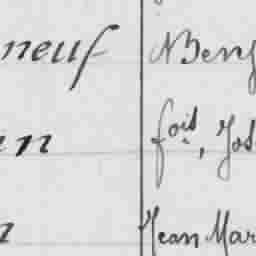 neuf Benj
n fois, Jos
Jean Mar